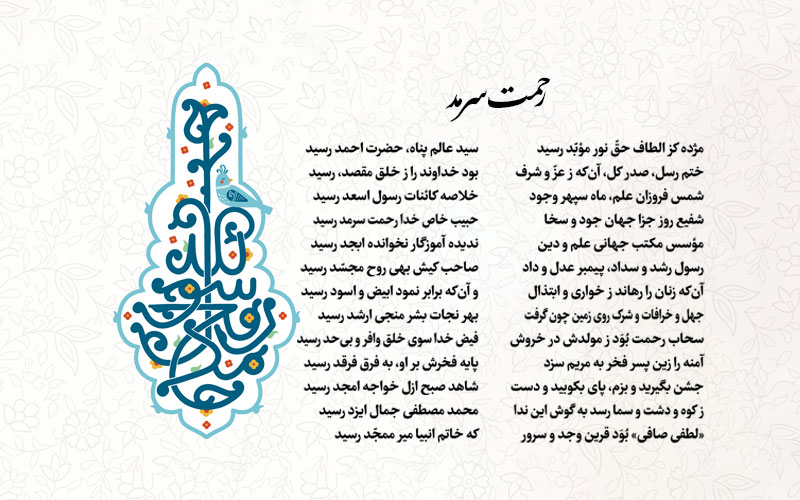 رحمت سرمد
مژده کز الطاف حقّ نور مؤیّد رسید سید عالم پناه، حضرت احمد رسید
ختم رسل، صدر کل، آن‌که ز عزّ و شرف بود خداوند را ز خلق مقصد، رسید
شمس فروزان علم، ماه سپهر وجود خلاصه کائنات رسول اسعد رسید
شفیع روز جزا جهان جود و سخا حبیب خاص خدا رحمت سرمد رسید
مؤسس مکتب جهانی علم و دین ندیده آموزگار نخوانده ابجد رسید
رسول رشد و سداد، پیمبر عدل و داد صاحب کیش بهی روح مجسّد رسید
آن‌که زنان را رهاند ز خواری و ابتذال و آن‌که برابر نمود ابیض و اسود رسید
جهل و خرافات و شرک روی زمین چون گرفت بهر نجات بشر منجی ارشد رسید
سحاب رحمت بُوَد ز مولدش در خروش فیض خدا سوی خلق وافر و بی‌حد رسید
آمنه را زین پسر فخر به مریم سزد پایه فخرش بر او، به فرق فرقد رسید
جشن بگیرید و بزم، پای بکوبید و دست شاهد صبح ازل خواجه امجد رسید
ز کوه و دشت و سما رسد به گوش این ندا محمد مصطفی جمال ایزد رسید
«لطفی صافی» بُوَد قرین وجد و سرور که خاتم انبیا میر ممجّد رسید